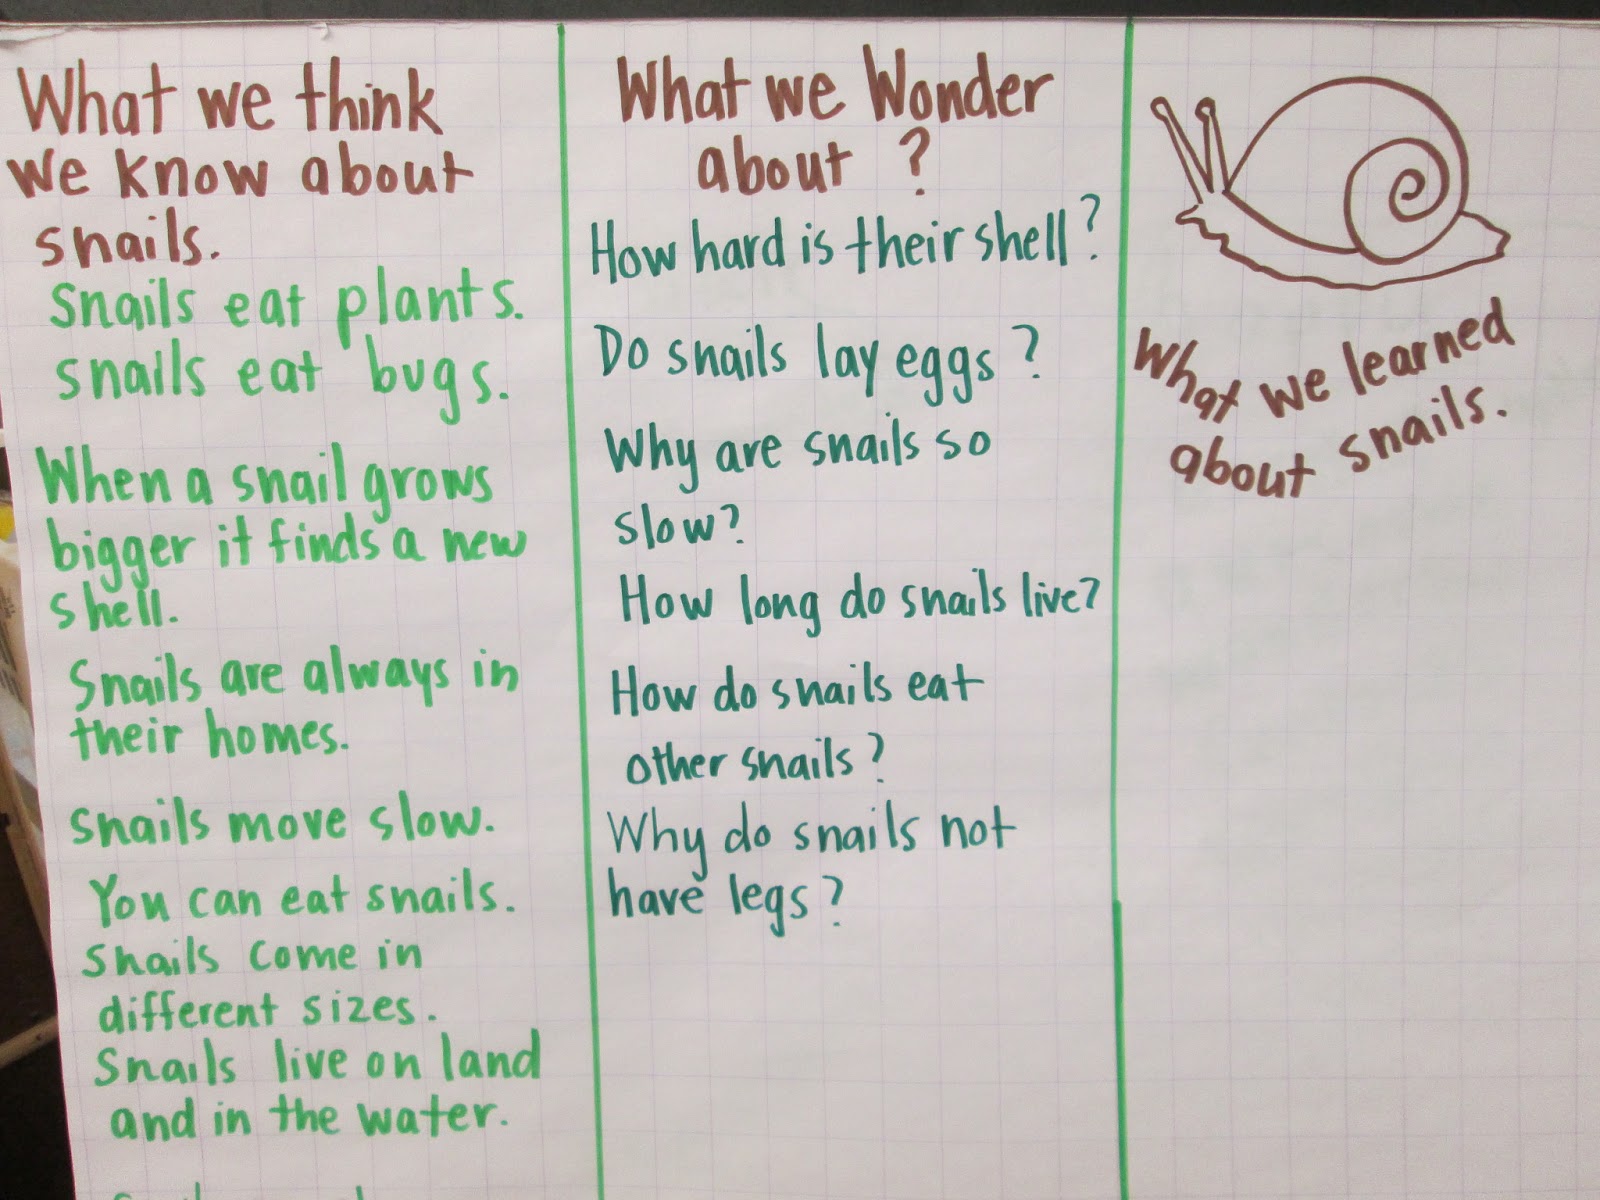 What we think
we know about
snails.
Snails eat plants.
snails eat bugs.
When a snail grows
bigger it finds a new
shell.
Snails are always in
their homes.
Snails move slow.
You can eat snails.
Snails come in
different sizes.
Snails live on land
and in the water.
What we Wonder
about ?
How hard is their shell?
Do snails lay eggs?
Why are snails so
slow?
How long do snails live?
How do snails eat
other snails?
Why do snails not
have legs?
What we learned
about snails.